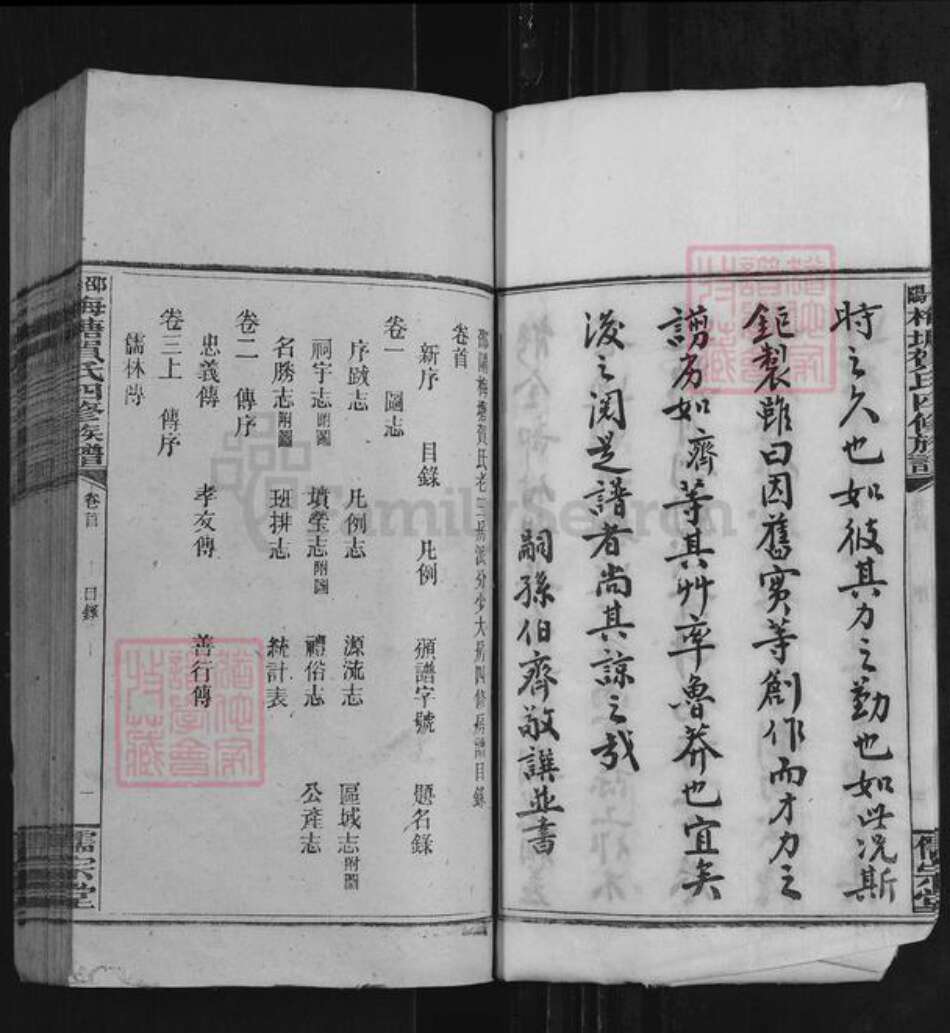 時之久也如彼其力之勤也如此況斯
鉅製雖曰因舊實等創作而才力之
譾劣如齊等其艸率魯莽也宜矣
後之閱是譜者尚其諒之哉
嗣孫伯齊敬譔並書
陽梅塘賀氏四修族譜
儒宗堂
邵陽梅塘賀氏老三房派分少大房四修房譜目錄
卷首
新序 目錄 凡例 頒譜字號 題名錄
卷一 圖志
序跋志 凡例志 源流志 區域志附圖
祠宇志附圖 墳塋志附圖 禮俗志 公產志
名勝志附圖 班排志 統計表
卷二 傳序
忠義傳 孝友傳 善行傳
卷三上 傳序
儒林傳
邵 梅塘賀氏四修族譜 卷首 目錄 一 儒宗堂
FamilySearch